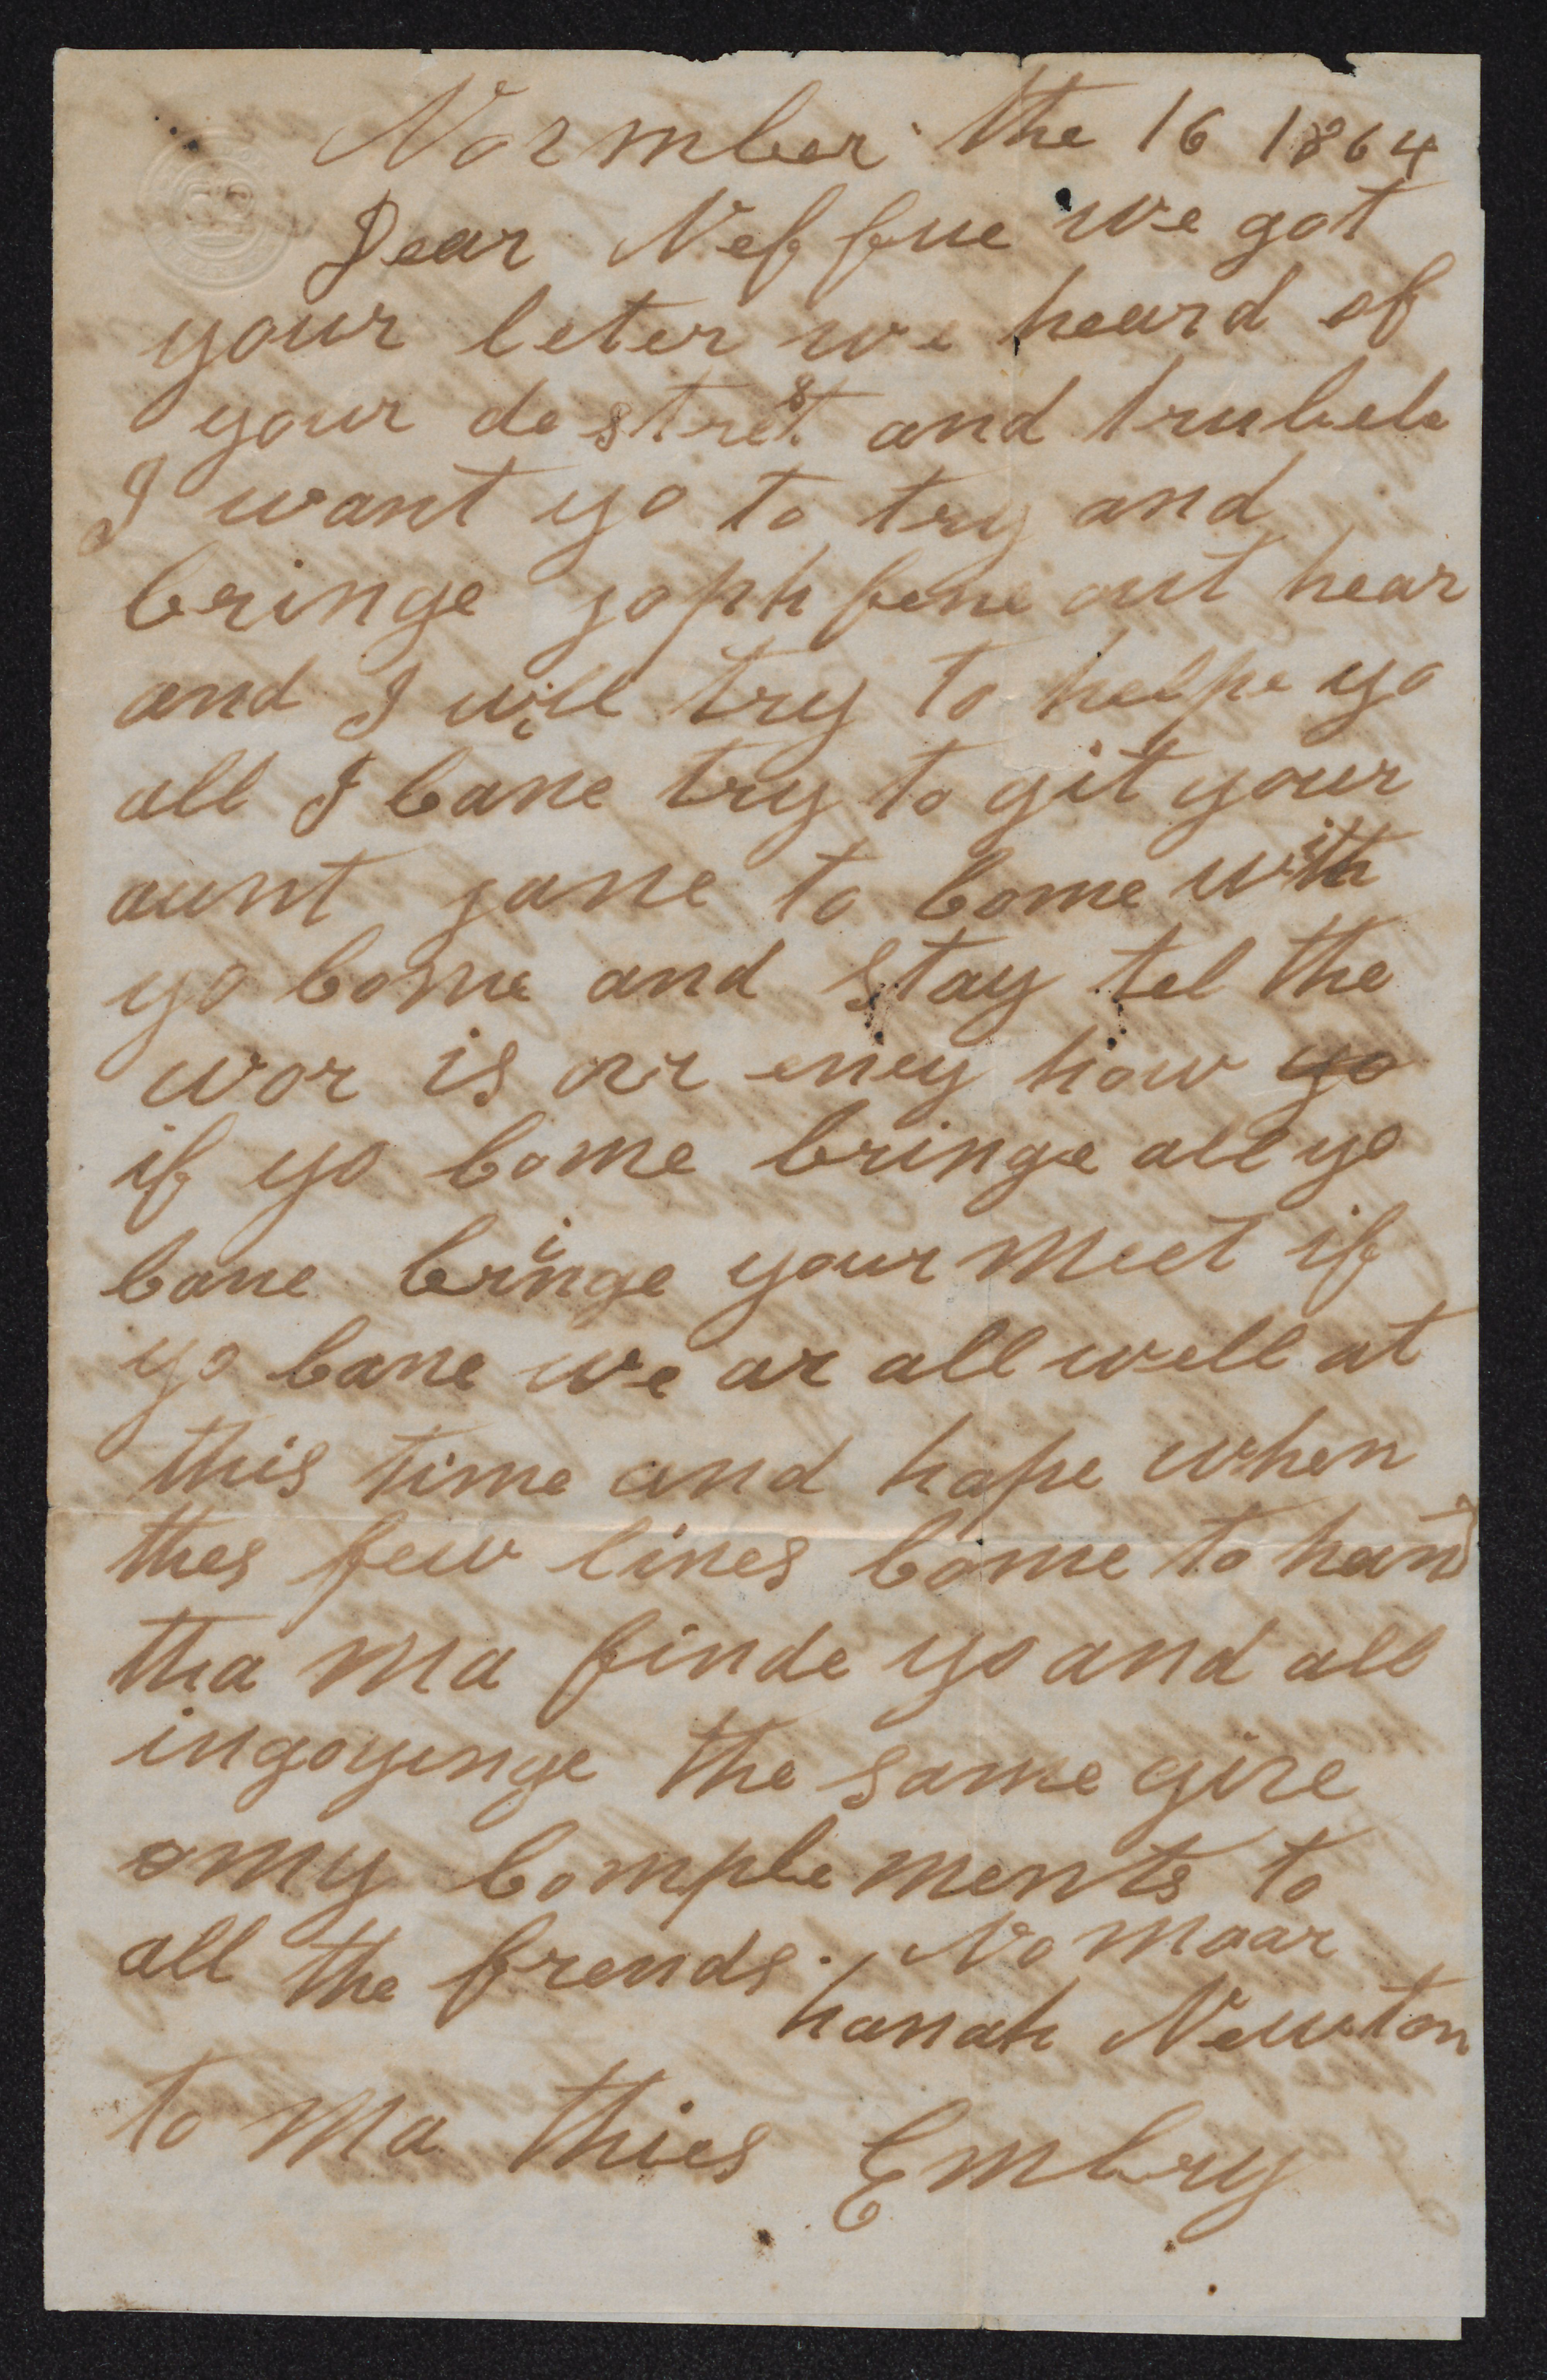 Novmber the 16 1864
Dear Neffue we got
your leter we heard of
your destrest and trubele
I want yo to try and
bringe jophfene out hear
and I will try to helpe yo
all I cane try to git your
aunt jane to come with
yo come and stay tel the
wor is ovr eney how yo
if yo come bringe all yo
cane bringe your meet if
yo cane we ar all well at
this time and hope when
thes few lines come to hand
tha ma finde yo and all
ingoyenge the same give
my complements to
all the frends. No moar
hanah Newton
to Ma thies Embry